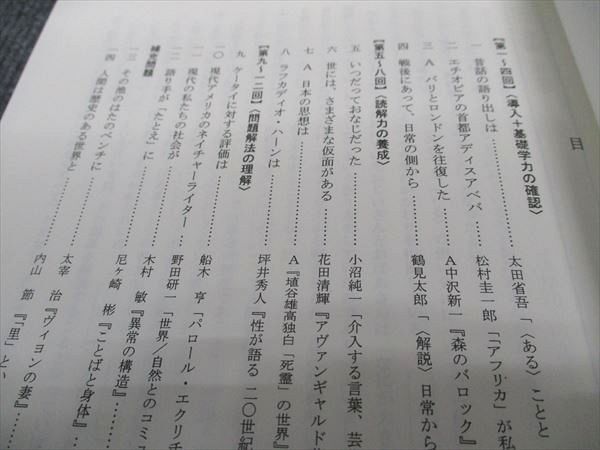 目
【第一～四回】〈導入＋基礎学力の確認〉
一 昔話の語り出しは…… 太田省吾「〈ある〉ことと
二 エチオピアの首都アディスアベバ…… 松村圭一郎「「アフリカ」が私
三 A パリとロンドンを往復した…… A中沢新一『森のバロック』
四 戦後にあって、日常の側から…… 鶴見太郎「〈解説〉日常から
【第五～八回】〈読解力の養成〉
五 いつだっておなじだった…… 小沼純一「介入する言葉、芸
六 世には、さまざまな仮面がある…… 花田清輝『アヴァンギャルド
七 A 日本の思想は…… A『埴谷雄高独白「死靈」の世界』
八 ラフカディオ・ハーンは…… 坪井秀人『性が語る 二〇世紀
【第九～一二回】〈問題解法の理解〉
九 ケータイに対する評価は…… 船木 亨「パロール・エクリチ
一〇 現代アメリカのネイチャーライター…… 野田研一「世界／自然とのコミュ
一一 現代の私たちの社会が…… 木村 敏『異常の構造』……
一二 語り手が「たとえ」に…… 尼ヶ崎 彬『ことばと身体』……
補充問題
一三 その池のはたのベンチに…… 太宰 治『ヴィヨンの妻』……
一四 人間は歴史のある世界と…… 内山 節『「里」とい